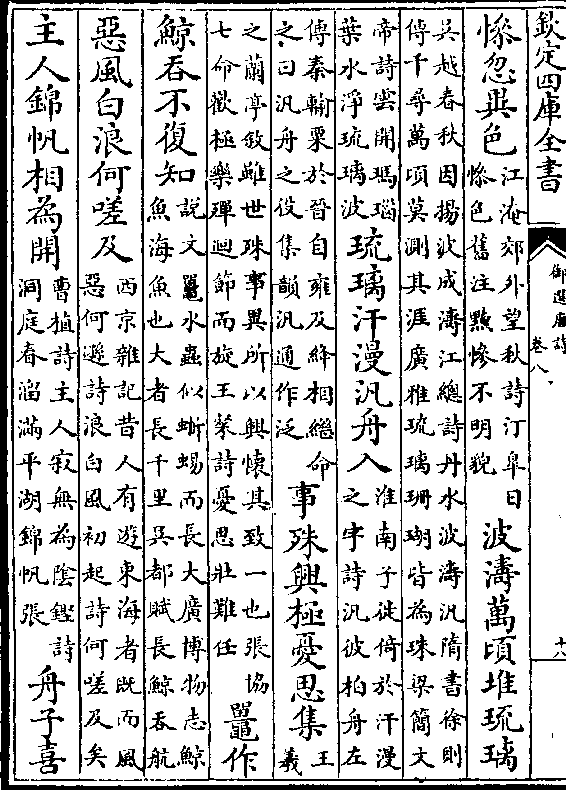 欽定四庫全書
御選唐詩
卷八
十八
慘忽異色
江淹郊外望秋詩汀臯日
慘色舊注黲慘不明貌
波濤萬頃堆琉璃
吳越春秋因揚波成濤江總詩丹水波濤汎隋書徐則
傳千尋萬頃莫測其涯廣雅琉璃珊瑚皆為珠梁簡文
帝詩雲開瑪瑙
葉水淨琉璃波
琉璃汗漫汎舟入
淮南子徙倚於汗漫
之宇詩汎彼柏舟左
傳秦輸粟於晉自雍及絳相繼命
之曰汎舟之役集韻汎通作泛
事殊興極憂思集
王
羲
之蘭亭敘雖世殊事異所以興懷其致一也張協
七命歡極樂殫迴節而旋王粲詩憂思壯難任
鼉作
鯨吞不復知
說文鼉水蟲似蜥蜴而長大廣博物志鯨
魚海魚也大者長千里吳都賦長鯨吞航
惡風白浪何嗟及
西京雜記昔人有遊東海者既而風
惡何遜詩浪白風初起詩何嗟及矣
主人錦帆相為開
曹植詩主人寂無為陰鏗詩
洞庭春溜滿平湖錦帆張
舟子喜